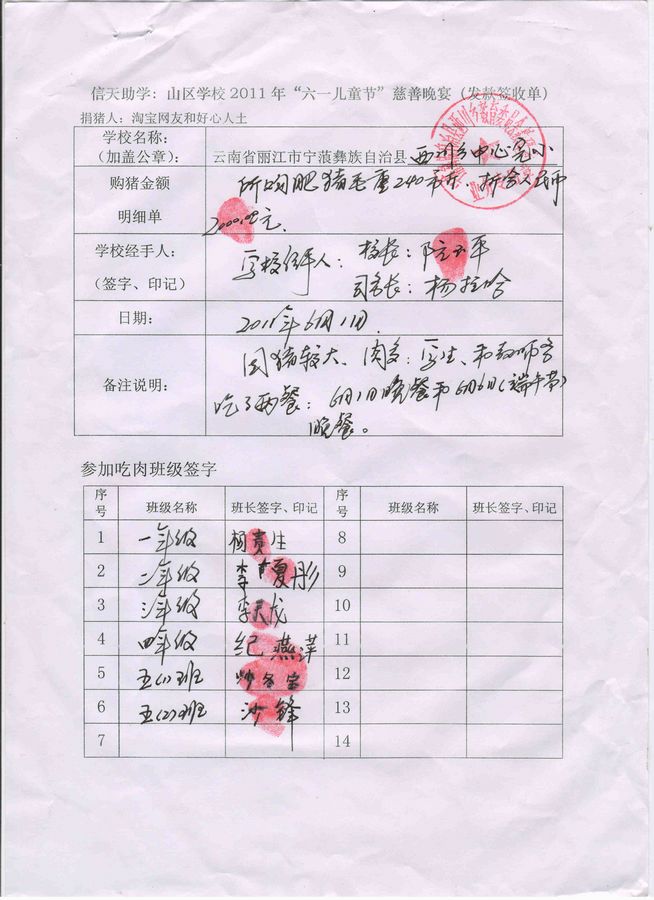 信天助学：山区学校2011年“六一儿童节”慈善晚宴（发款签收单）
捐猪人：淘宝网友和好心人士
学校名称：
（加盖公章）：
云南省丽江市宁蒗彝族自治县西川乡中心完小
购猪金额
明细单
所购肥猪毛重240市斤，折合人民币
2000.00元.
学校经手人：
（签字、印记）
学校经手人：校长：阮玉平
司务长：杨拉哈
日期：
2011年6月1日.
备注说明：
因猪较大、肉多：学生、和教师共
吃了两餐：6月1日晚餐和6月6日（端午节）
晚餐。
参加吃肉班级签字
序号 班级名称 班长签字、印记 序号 班级名称 班长签字、印记
1 一年级 杨贵生 8
2 二年级 李夏彤 9
3 三年级 李天龙 10
4 四年级 纪燕萍 11
5 五(1)班 12
6 五(2)班 沙锋 13
7 14